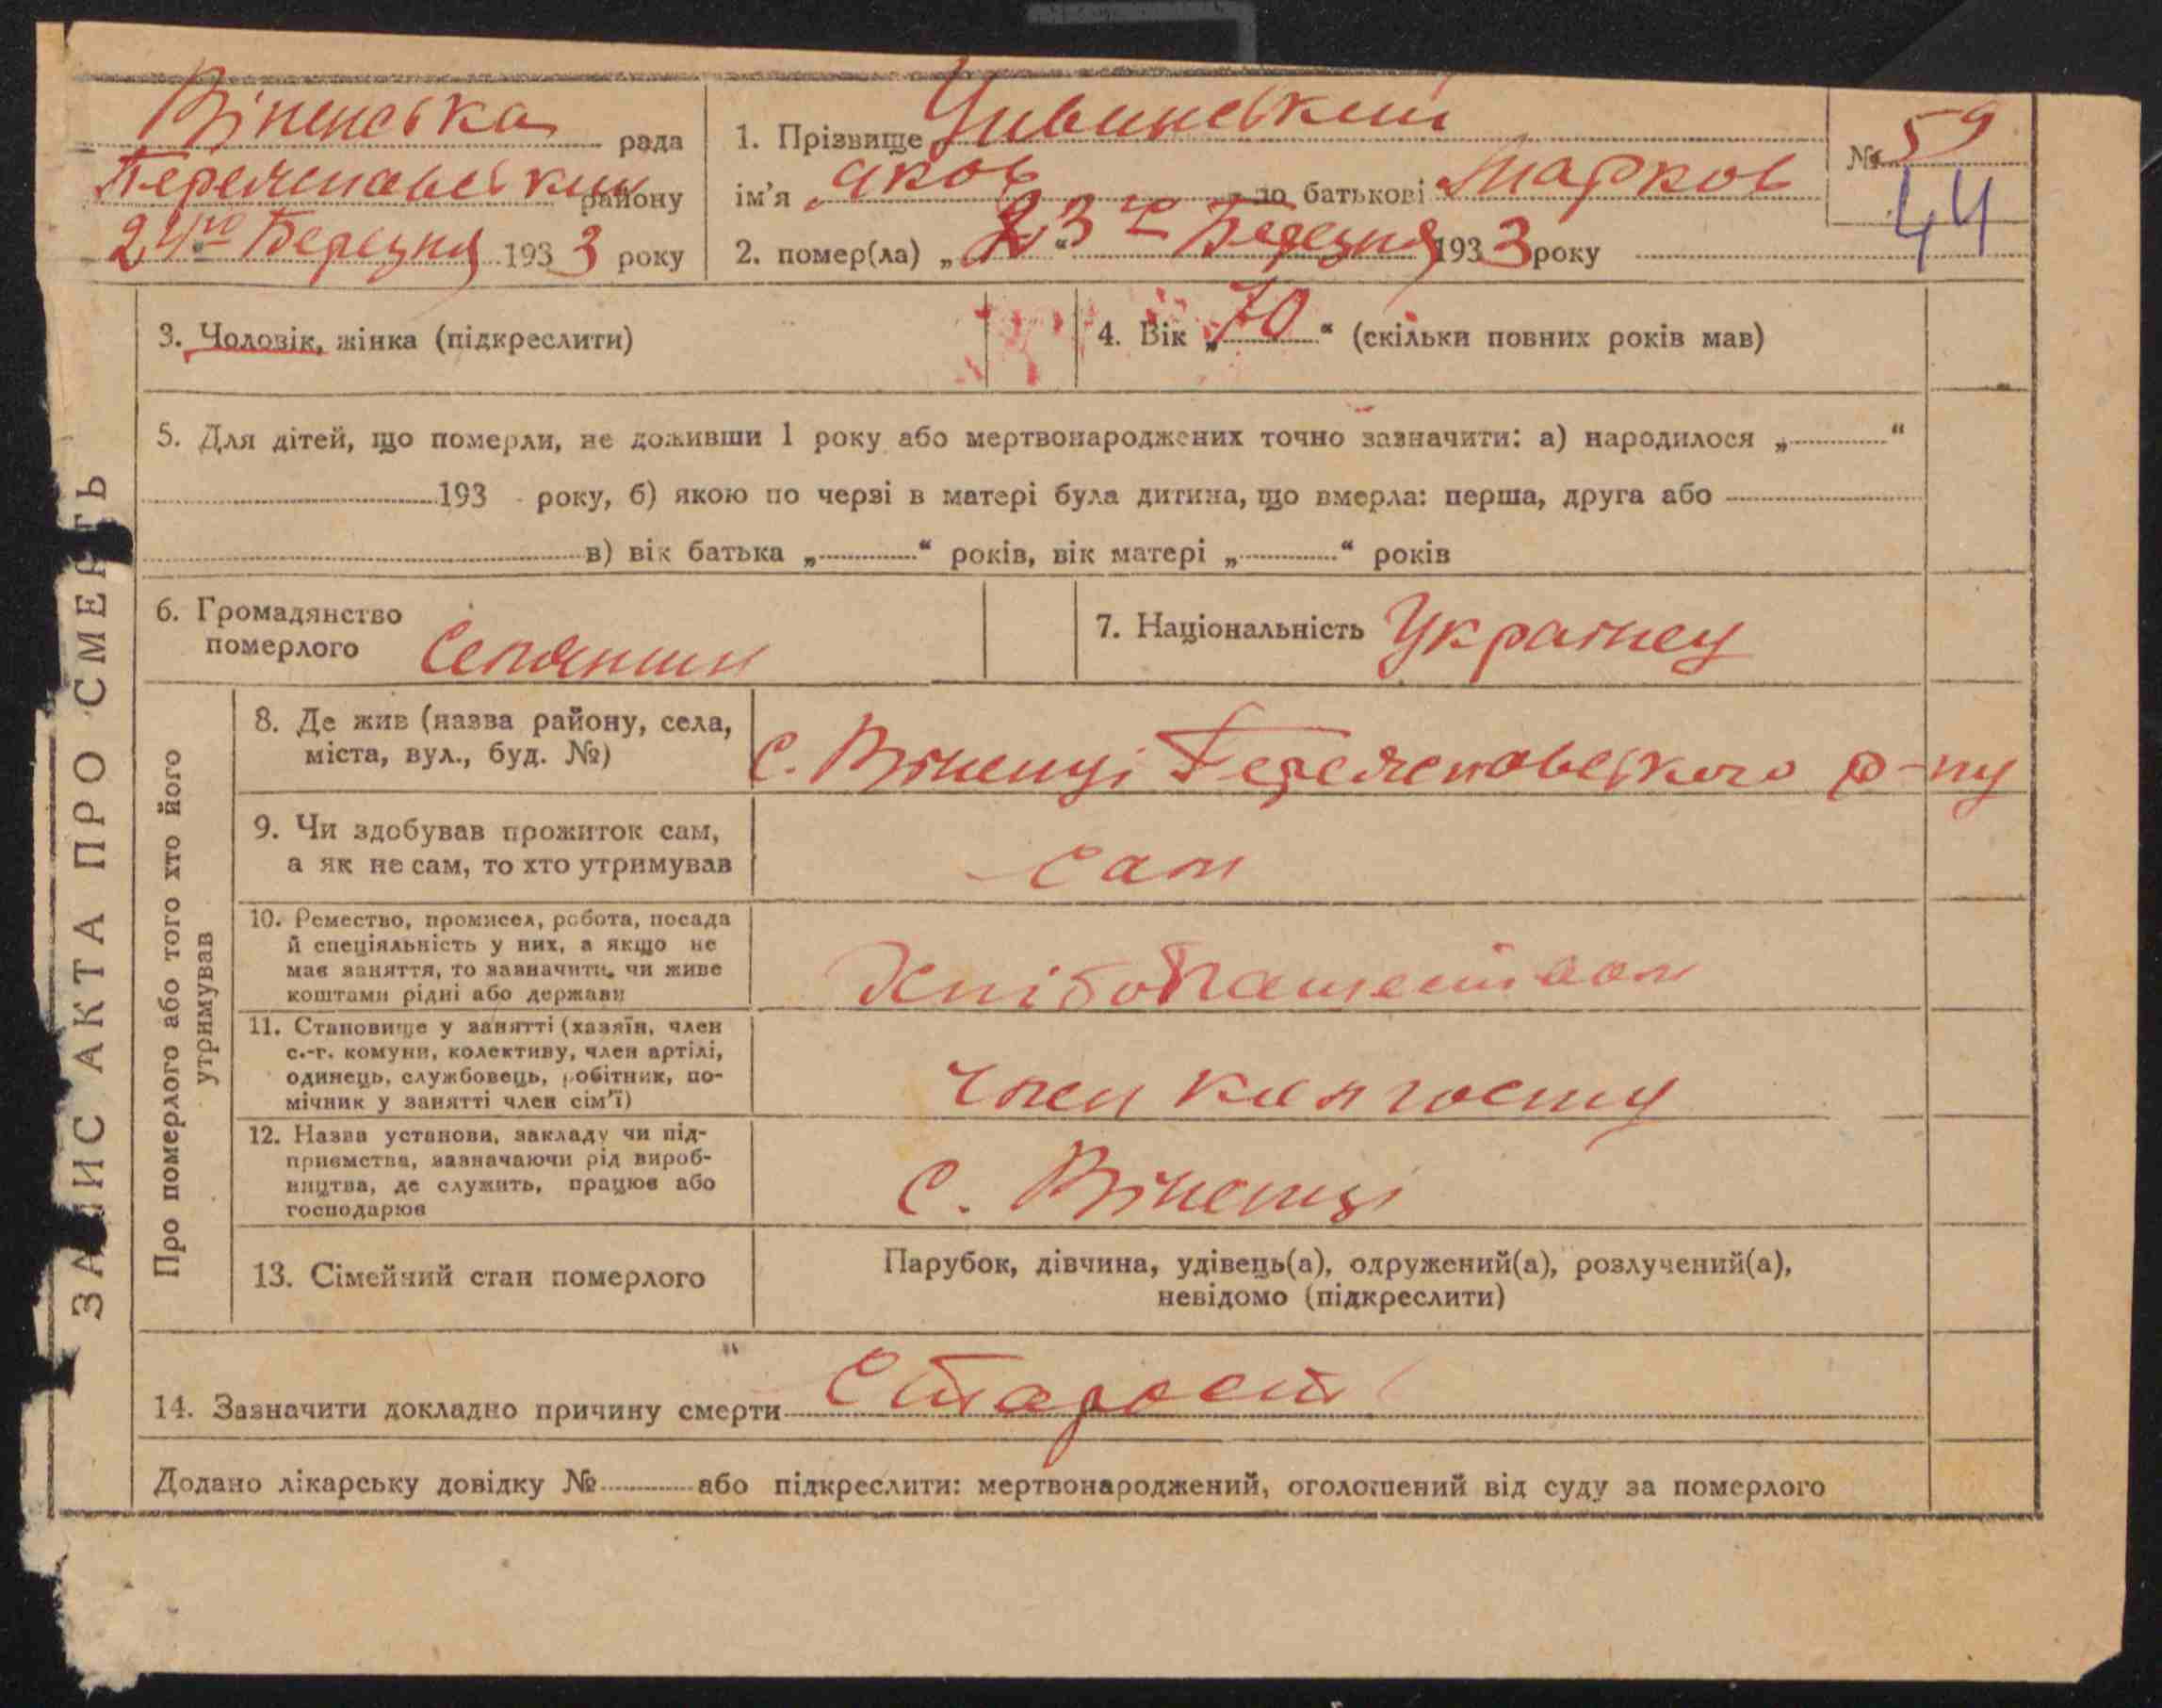 Віненська рада
Переяславський району
24го Березня 1933 року
1. Прізвище Чивинський
ім'я Яков по батькові Марков
2. помер(ла) „23го“ Березня 1933 року
№ 59
44
ЗАПИС АКТА ПРО СМЕРТЬ
3. Чоловік, жінка (підкреслити)
4. Вік „70“ (скільки повних років мав)
5. Для дітей, що померли, не доживши 1 року або мертвонароджених точно зазначити: а) народилося „ “
193 року, б) якою по черзі в матері була дитина, що вмерла: перша, друга або
в) вік батька „ “ років, вік матері „ “ років
6. Громадянство
померлого Селянин
7. Національність Українец
Про померлого або того хто його
утримував
8. Де жив (назва району, села,
міста, вул., буд. №)
с. Віненці Переяславського р-ну
9. Чи здобував прожиток сам,
а як не сам, то хто утримував
сам
10. Ремество, промисел, робота, посада
й спеціяльність у них, а якщо не
має заняття, то зазначити, чи живе
коштами рідні або держави
11. Становище у занятті (хазяїн, член
с.-г. комуни, колективу, член артілі,
одинець, службовець, робітник, по-
мічник у занятті член сім'ї)
член колгоспу
12. Назва установи, закладу чи під-
приємства, зазначаючи рід вироб-
ництва, де служить, працює або
господарює
с. Віненці
13. Сімейний стан померлого
Парубок, дівчина, удівець(а), одружений(а), розлучений(а),
невідомо (підкреслити)
14. Зазначити докладно причину смерти Старост
Додано лікарську довідку № або підкреслити: мертвонароджений, оголошений від суду за померлого